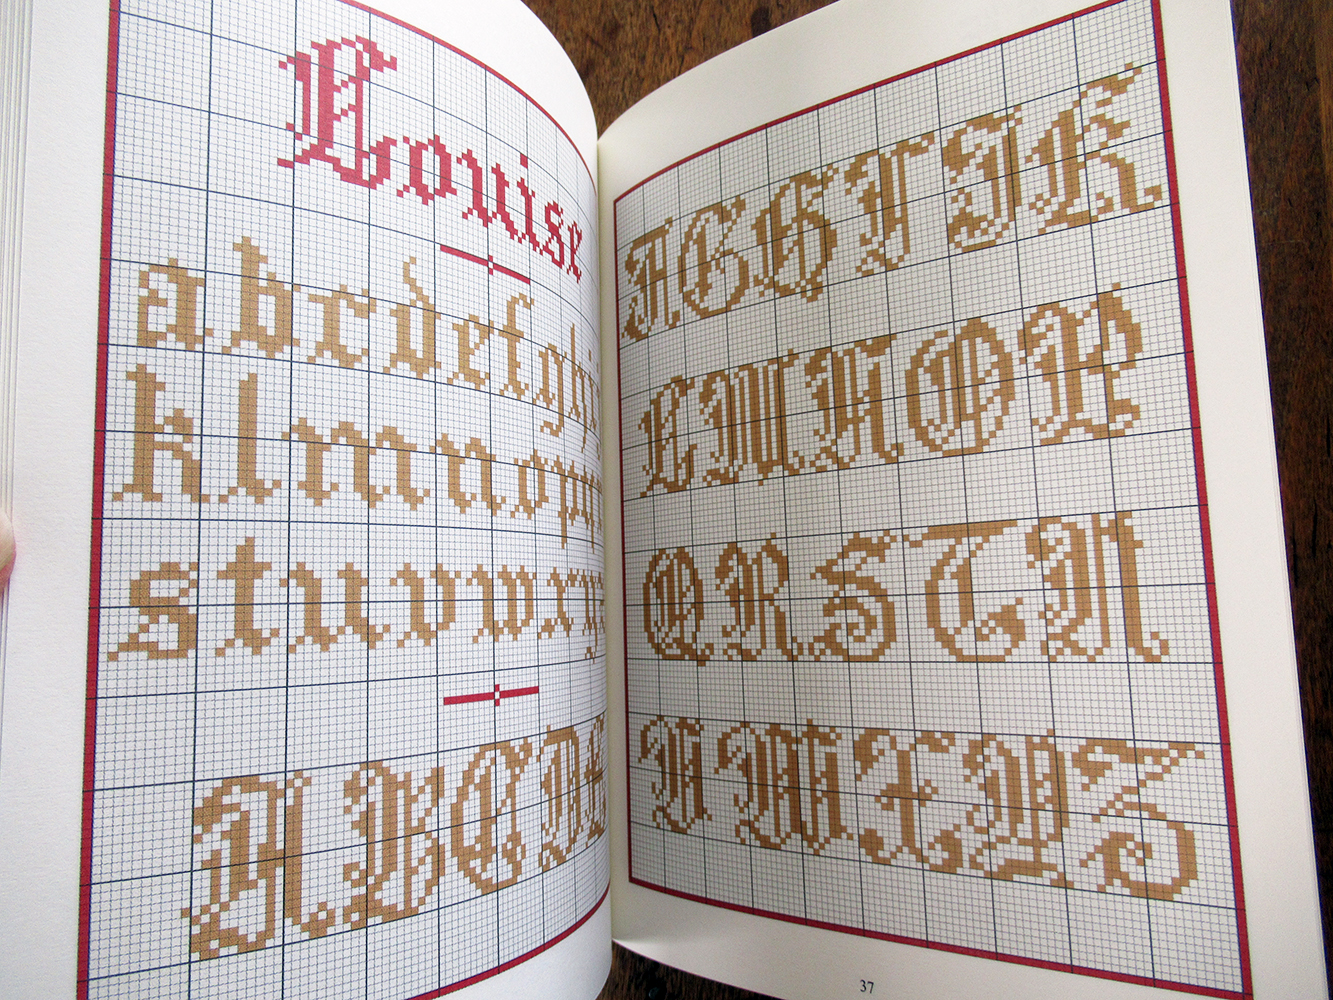 Louise
abcdefghi
klmnopq
stuvwxy
ABCDE
FGHIJK
LMNOP
QRSTU
VWXYZ
37